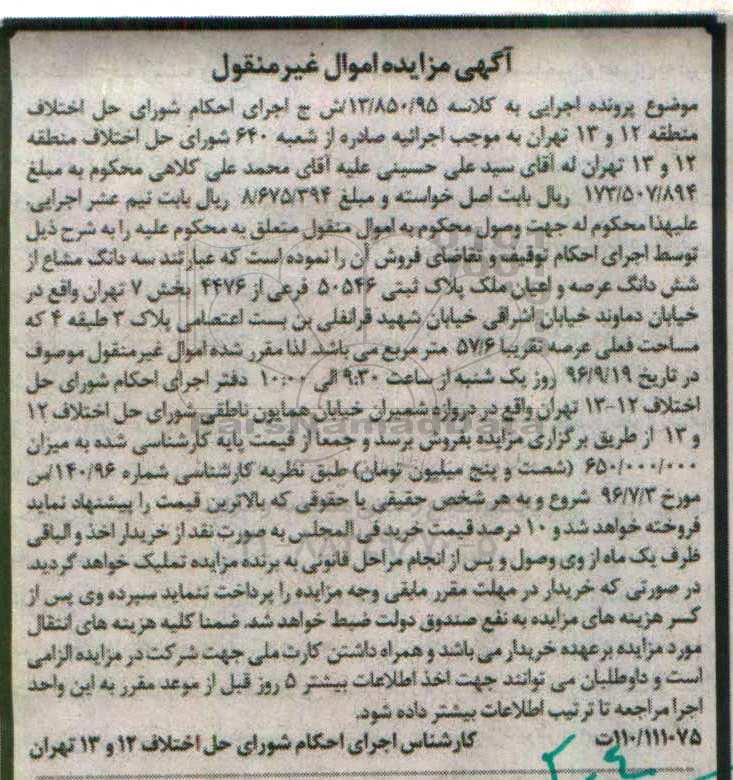 آگهی مزایده اموال غیر منقول
موضوع پرونده اجرایی به کلاسه ۱۳/۸۵۰/۹۵/ش ج اجرای احکام شورای حل اختلاف
منطقه ۱۲ و ۱۳ تهران به موجب اجرائیه صادره از شعبه ۶۴۰ شورای حل اختلاف منطقه
۱۲ و ۱۳ تهران له آقای سید علی حسینی علیه آقای محمد علی کلاهی محکوم به مبلغ
۱۷۳/۵۰۷/۸۹۴ ریال بابت اصل خواسته و مبلغ ۸/۶۷۵/۳۹۴ ریال بابت نیم عشر اجرایی.
علیهذا محکوم له جهت وصول محکوم به اموال منقول متعلق به محکوم علیه را به شرح ذیل
توسط اجرای احکام توقیف و تقاضای فروش آن را نموده است که عبارتند سه دانگ مشاع از
شش دانگ عرصه و اعیان ملک پلاک ثبتی ۵۰۵۴۶ فرعی از ۴۴۷۶ بخش ۷ تهران واقع در
خیابان دماوند خیابان اشراقی خیابان شهید قرانفلی بن بست اعتصامی پلاک ۳ طبقه ۴ که
مساحت فعلی عرصه تقریبا ۵۷/۶ متر مربع می باشد. لذا مقرر شده اموال غیر منقول موصوف
در تاریخ ۹۶/۹/۱۹ روز یک شنبه از ساعت ۹:۳۰ الی ۱۰:۰۰ دفتر اجرای احکام شورای حل
اختلاف ۱۲-۱۳ تهران واقع در دروازه شمیران خیابان همایون ناطقی شورای حل اختلاف ۱۲
و ۱۳ از طریق برگزاری مزایده بفروش برسد و جمعا از قیمت پایه کارشناسی شده به میزان
۶۵۰/۰۰۰/۰۰۰ (شصت و پنج میلیون تومان) طبق نظریه کارشناسی شماره ۱۴۰/۹۶/س
مورخ ۹۶/۷/۳ شروع و به هر شخص حقیقی یا حقوقی که بالاترین قیمت را پیشنهاد نماید
فروخته خواهد شد و ۱۰ درصد قیمت خرید فی المجلس به صورت نقد از خریدار اخذ و الباقی
ظرف یک ماه از وی وصول و پس از انجام مراحل قانونی به برنده مزایده تملیک خواهد گردید.
در صورتی که خریدار در مهلت مقرر مابقی وجه مزایده را پرداخت ننماید سپرده وی پس از
کسر هزینه های مزایده به نفع صندوق دولت ضبط خواهد شد. ضمنا کلیه هزینه های انتقال
مورد مزایده برعهده خریدار می باشد و همراه داشتن کارت ملی جهت شرکت در مزایده الزامی
است و داوطلبان می توانند جهت اخذ اطلاعات بیشتر ۵ روز قبل از موعد مقرر به این واحد
اجرا مراجعه تا ترتیب اطلاعات بیشتر داده شود.
۱۱۰/۱۱۱۰۷۵ت کارشناس اجرای احکام شورای حل اختلاف ۱۲ و ۱۳ تهران